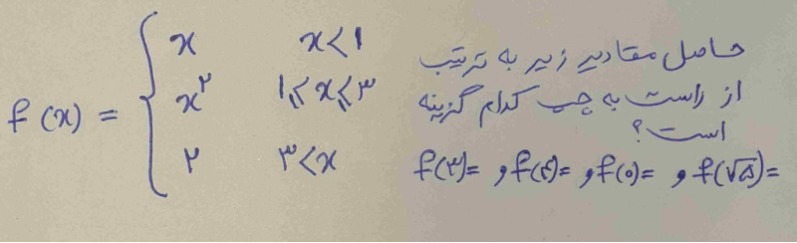 f(x) = { x    x<۱
x^۲    ۱⩽x⩽۳
۲    ۳<x
حاصل مقادیر زیر به ترتیب
از راست به چپ کدام گزینه
است؟
f(۳)= , f(۴)= , f(۰)= , f(√۵)=